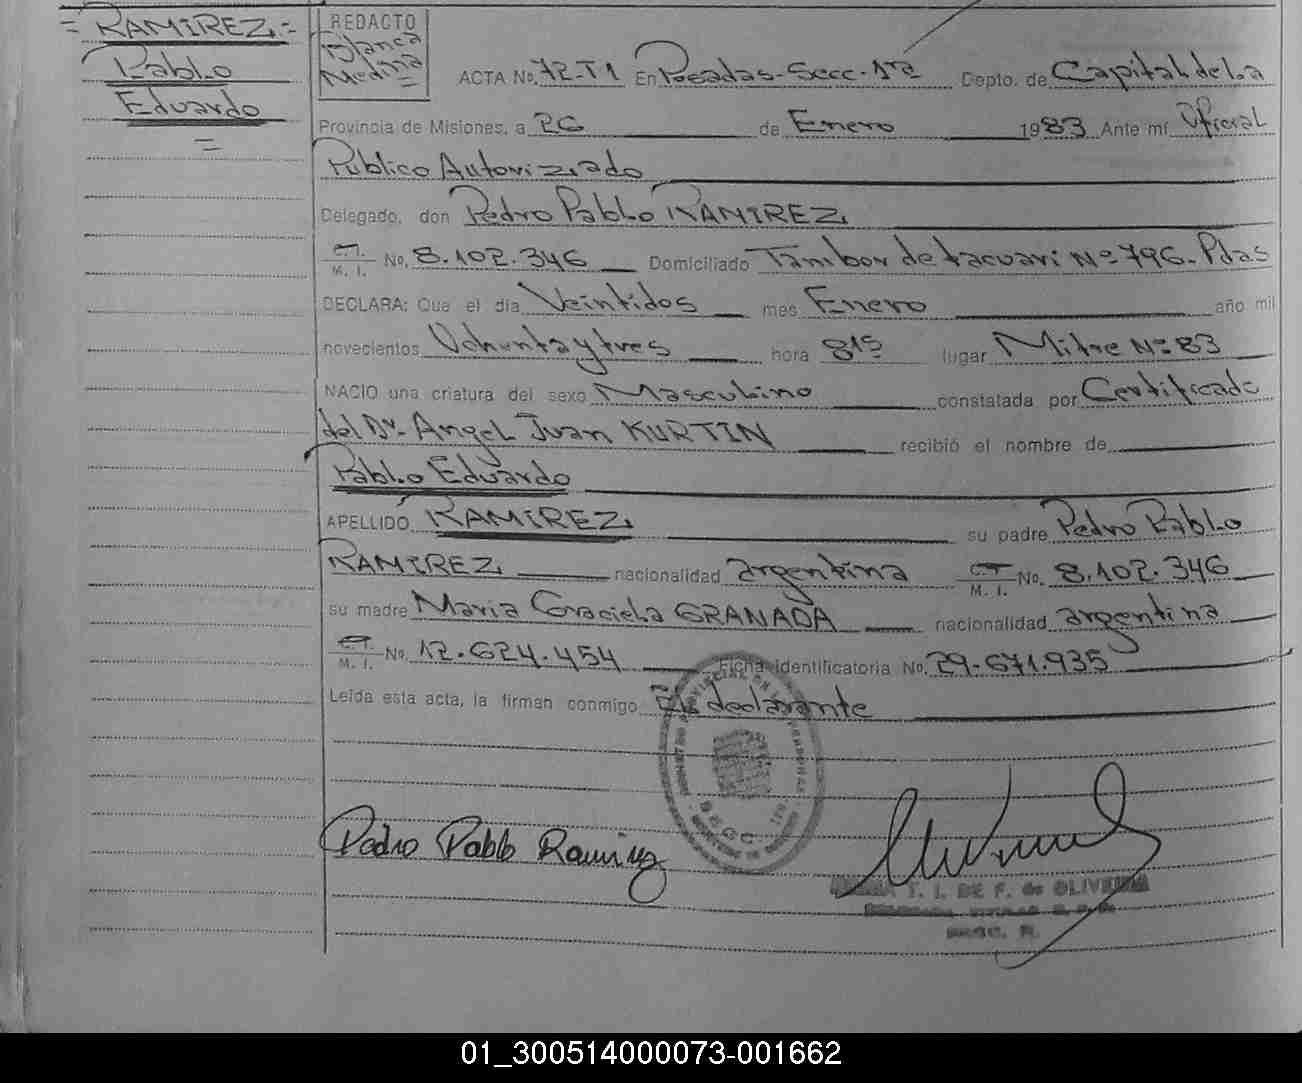 = RAMIREZ =
Pablo
Eduardo
=
REDACTO
Blanca
Medina
ACTA No. 72-T1 En Posadas-Secc-1ra Depto. de Capital de la
Provincia de Misiones, a 26 de Enero 1983 Ante mí Oficial
Publico Autorizado
Delegado, don Pedro Pablo RAMIREZ
C.I.
M. I. No. 8.102.346 Domiciliado Tambor de tacuari Nº 796. Pdas
DECLARA: Que el día Veintidos mes Enero año mil
novecientos Ochentaytres hora 8¹⁵ lugar Mitre Nº 83
NACIO una criatura del sexo Masculino constatada por Certificado
del Dr. Angel Juan KURTIN recibió el nombre de
Pablo Eduardo
APELLIDO RAMIREZ su padre Pedro Pablo
RAMIREZ nacionalidad argentina C.I.
M. I. No. 8.102.346
su madre Maria Graciela GRANADA nacionalidad argentina
C.I.
M. I. No. 12.624.454 Ficha Identificatoria No. 29.671.935
Leída esta acta, la firman conmigo El declarante
Pedro Pablo Ramirez
T. I. DE F. de OLIVEIRA
01_300514000073-001662